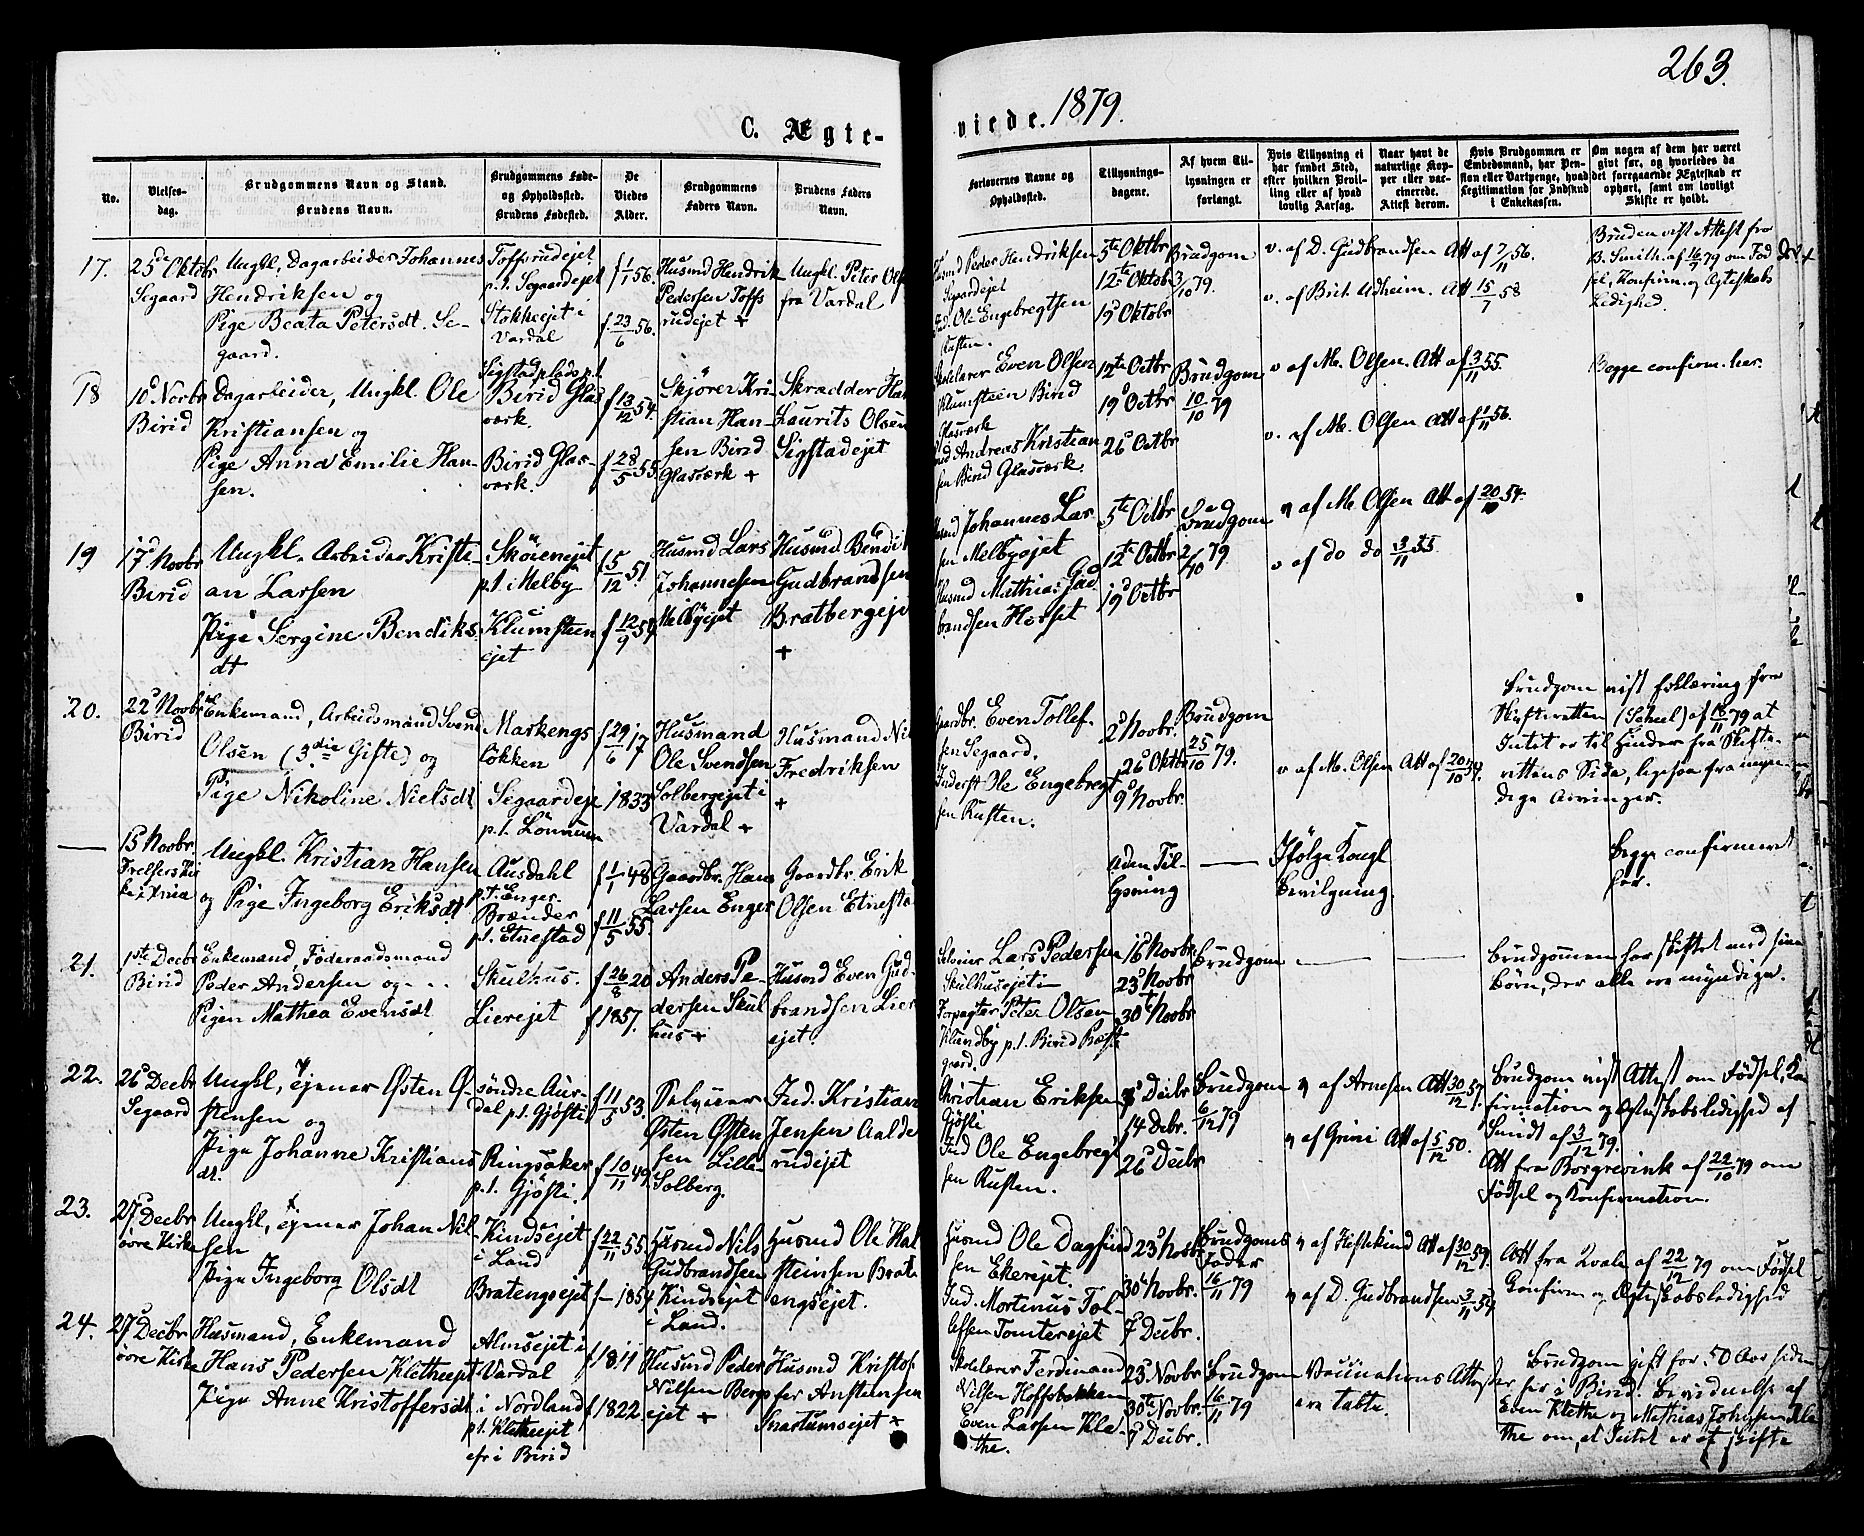 263.
C. Ægte-
viede. 1879.
No.
Vielses-
dag.
Brudgommens Navn og Stand.
Brudens Navn.
Brudgommens Føde-
og Opholdssted.
Brudens Fødested.
De
Viedes
Alder.
Brudgommens
Faders Navn.
Brudens Faders
Navn.
Forlovernes Navne og
Opholdssted.
Tillysnings-
dagene.
Af hvem Til-
lysningen er
forlangt.
Hvis Tillysning ei
har fundet Sted,
efter hvilken Bevil-
ling eller af hvad
lovlig Aarsag.
Naar havt de
naturlige Kop-
per eller vac-
cinerede.
Attest derom.
Hvis Brudgommen er
Embedsmand, har Pen-
sion eller Vartpenge, hvad
Legitimation for Indskud
i Enkekassen.
Om nogen af dem har været
gift før, og hvorledes da
det foregaaende Ægteskab er
ophørt, samt om lovligt
Skifte er holdt.
17.
25d Oktobr
Segaard
Ungkl, Dagarbeider Johannes
Hendriksen og
Pige Beata Petersdt. Se-
gaard.
Toffsrudejet
p.t. Segaardejet
Stokkeejet i
Vardal
f 1/1 56.
f. 23/6 56.
Husmd Hendrik
Pedersen Toffs
rudejet +
Ungkl. Peter Ols
fra Vardal
Husmd Peder Hendriksen
Segaardejet
Ind. Ole Engebregtsen
Rusten.
5te Oktbr
12te Oktobr
19d Oktobr
Brudgom
3/10 79.
v. af D. Gudbrandsen Att af 7/11 56.
v. af Brit. Udheim. Att 15/7 58
Bruden vist Attest fra
B. Smith. af 16/9 79 om Fød
sel, Konfirm. og Ægteskabs
Ledighed.
18
10d Novbr
Birid
Dagarbeider, Ungkl. Ole
Kristiansen og
Pige Anna Emilie Han-
sen.
Sigstadplads p.t.
Birid Glas
værk.
Birid Glas-
værk.
f 13/12 54.
f 28/5 55.
Skjører Kri-
stian Han-
sen Birid
Glasværk +
Skrædder Han
Laurits Olsen
Sigstadejet
Even Olsen
Klumsteen Birid
Glasværk
Andreas Kristian
sen Birid Glasværk.
12te Octbr
19d Octbr
26d Octbr
Brudgom
10/10 79
v af M. Olsen. Att af 3/11 55.
v. af M. Olsen Att af 1/11 56.
Begge confirm. her.
19
17d Novbr
Birid
Ungkl. Arbeider Kristi-
an Larsen
Pige Sergine Bendiks
dt
Skøienejet
p.t. i Melby
Klumsteen
ejet
f 5/12 51
f 12/9 59
Husmd Lars
Johannesen
Melbyejet
Husmd. Bendik
Gudbrandsen
Bratbergejet
+
Husmd Johannes Lar
sen Melbyejet
Husmd Mathias Gud
brandsen Hørset
5te Octbr
12te Octbr
19d Octbr
Brudgom
2/10 79
v af M. Olsen Att af 20/10 54.
v af do do 3/11 55
20.
22d Novbr
Birid
Enkemand, Arbeidsmand Svend
Olsen (3die Gifte) og
Pige Nikoline Nielsdt
Markengs
løkken
Segaardeje
p.t. Lønnum
f 29/6 17
1833
Husmand
Ole Svendsen
Solbergejet i
Vardal +
Husmand Nil
Fredriksen
+
Gaardbr. Even Tollef-
sen Segaard.
Inderst Ole Engebregt
sen Rusten.
2d Novbr.
26d Oktbr
9d Novbr.
Brudgom
25/10 79.
v af M. Olsen Att af 20/10 54.
Brudgom vist Erklæring fra
Skifteretten (Scheel) af 18/11 79 at
Intet er til Hinder fra Skifte-
rettens Side, ligesaa fra myn-
dige Arvinger.
—
15 Novbr
Frelsers Kir
ke i Xtnia
Ungkl. Kristian Hansen
og Pige Ingeborg Eriksdt
Ausdahl
p.t. Enger
Brænder
p.t. Etnestad
f 1/1 48
f 11/5 55.
Gaardbr. Hans
Larsen Enger
Gaardbr. Erik
Olsen Etnesta
uden Til-
lysning
—
Ifølge Kongl
Bevilgning.
Begge confirmeret
her.
21.
1ste Decbr
Birid
Enkemand, Føderaadsmand
Peder Andersen og - - -
Pigen Mathea Evensdt
Skulhus.
Lierejet
f 26/8 20
f 1857.
Anders Pe-
dersen Skul
hus +
Husmd Even Gud-
brandsen Lier
ejet.
Selveier Lars Pedersen
Skulhusejet
Forpagter Peter Olsen
Klundby p.t. Birid Præste
gaard.
16d Novbr
23d Novbr
30te Novbr
Brudgom
—
—
Brudgommen har skiftet med sine
Børn, der alle ere myndige.
22.
26d Decbr
Segaard
Ungkl, Ejener Østen Ø-
stensen og
Pige Johanne Kristians
dt.
søndre Aur-
dal p.t. Gjøsti
Ringsaker
p.t. Gjøsti.
f 11/5 53.
f 10/11 49.
Selveier
Østen Østen
sen Lille-
Solberg.
Ind. Kristian
Jensen Aalde
rudejet
Christian Eriksen
Gjøsti
Ind Ole Engebregt
sen Rusten.
8d Decbr
14 Debr.
26d Decbr
Brudgom
6/12 79
v af Arnesen Att 30/12 57.
v af Grini Att af 5/12 50.
Brudgom vist Attest om Fødsel, Kon
firmation og Ægteskabsledighed af
Smidt af 3/12 79.
Att fra Borgrevink af 22/10 79 om
Fødsel og Konfirmation.
23.
27d Decbr
øvre Kirke
Ungkl, Ejener Johan Nil-
sen
Pige Ingeborg Olsdt
Kindsejet
i Land
Bratengsejet
f 22/11 55
f - 1854
Husmd Nils
Gudbrandsen
Kindsejet
i Land.
Husmd Ole Hal
steinsen Brat
engsejet.
Husmd Ole Dagfind
sen Ekerejet.
Ind. Mortinus Tol-
lefsen Tomterejet
23d Novbr
30te Novbr.
7 Decbr.
Brudgoms
Fader
16/11 79
v af Heftekind Att af 30/12 59.
v af D. Gudbrandsen 3/11 54
Att fra Kvale af 22/12 79 om Fødsel
Confirm og Ægteskabsledighed
24.
27d Decbr
øvre Kirke
Husmand, Enkemand
Hans Pedersen Kletheejet
Pige Anne Kristoffersdt
Almsejet i
Vardal
i Nordland
p.t. Kletheejet
her i Birid
f 1811
f 1822.
Husmd Peder
Nilsen Bergs
ejet +
Husmd Kristof
fer Anstensen
Snartumsejet +
Skolelærer Ferdinand
Nilsen Hoffsbakken
Even Larsen Kle-
the.
23d Novbr
30te Novbr.
7 Decbr.
Brudgom
16/11 79
Vaccinations Attester
ere tabte.
Brudgom gift for 50 Aar siden
her i Birid. Bevidnelse af
Even Klethe og Mathias Johnsen Kle
the om, at Intet er at skifte